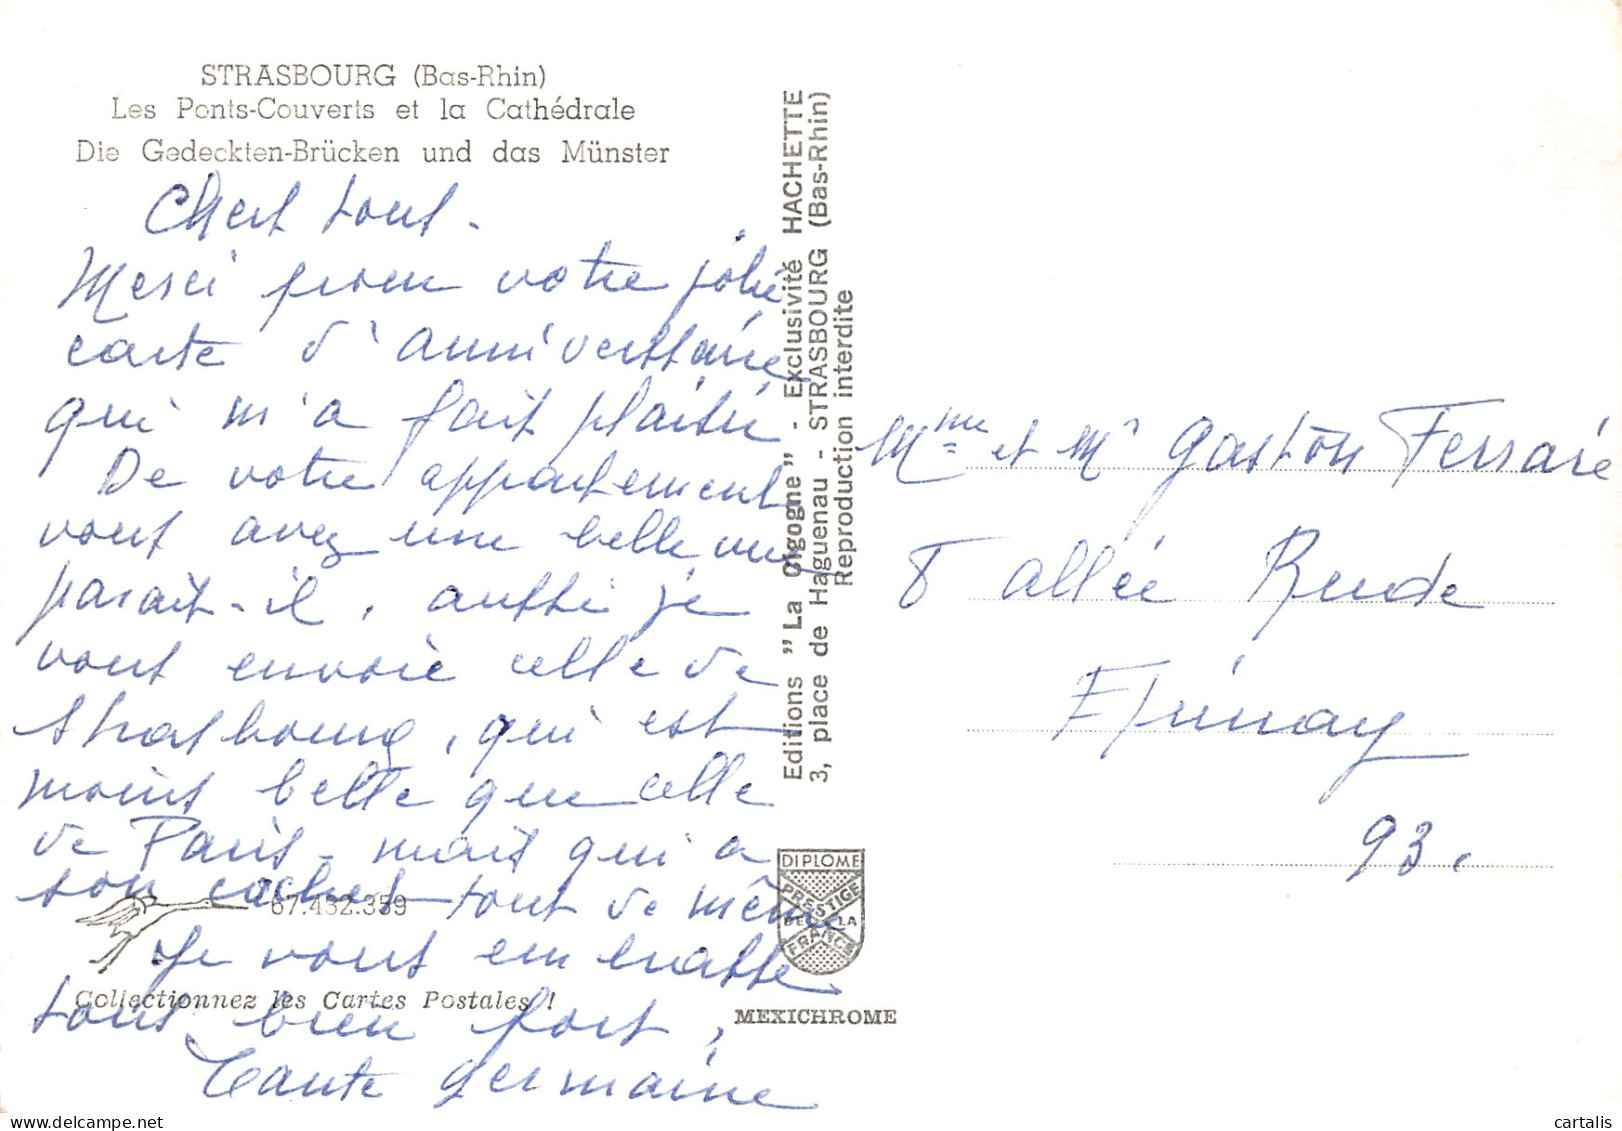 STRASBOURG (Bas-Rhin)
Les Ponts-Couverts et la Cathédrale
Die Gedeckten-Brücken und das Münster
Chers tous -
Merci pour votre jolie
carte d'anniversaire
qui m'a fait plaisir
De votre appartement
vous avez une belle vue
parait-il, aussi je
vous envoie celle de
Strasbourg, qui est
moins belle que celle
de Paris - mais qui a
son cachet tout de même
Je vous embrasse
tous bien fort,
Tante Germaine
67.482.359
Collectionnez les Cartes Postales !
Editions "La Cigogne" - Exclusivité HACHETTE
3, place de Haguenau - STRASBOURG (Bas-Rhin)
Reproduction interdite
DIPLOME
PRESTIGE
DE LA
FRANCE
MEXICHROME
Mme et Mr Gaston Ferraré
8 allée Rude
Epinay
93.
delcampe.net
cartalis